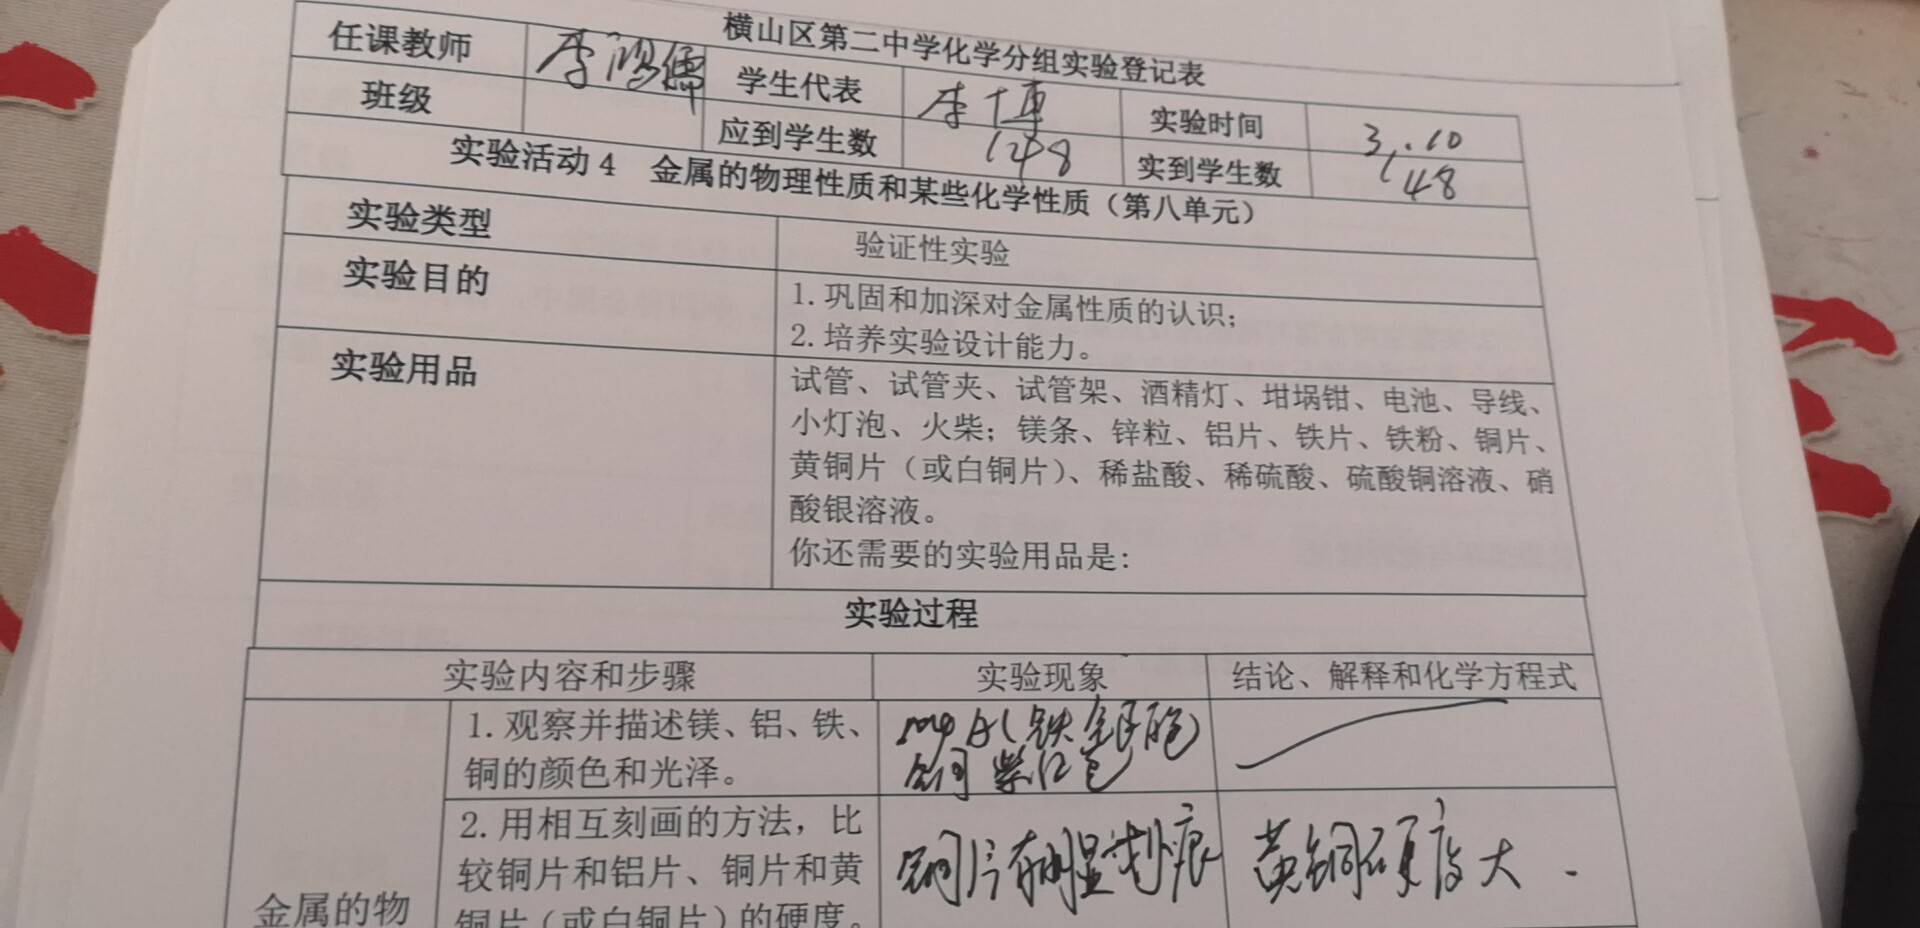 横山区第二中学化学分组实验登记表
任课教师 李鸿儒 学生代表 李博 实验时间 3.10
班级 应到学生数 148 实到学生数 148
实验活动4 金属的物理性质和某些化学性质（第八单元）
实验类型 验证性实验
实验目的 1.巩固和加深对金属性质的认识；
2.培养实验设计能力。
实验用品 试管、试管夹、试管架、酒精灯、坩埚钳、电池、导线、
小灯泡、火柴；镁条、锌粒、铝片、铁片、铁粉、铜片、
黄铜片（或白铜片）、稀盐酸、稀硫酸、硫酸铜溶液、硝
酸银溶液。
你还需要的实验用品是：
实验过程
实验内容和步骤 实验现象 结论、解释和化学方程式
1.观察并描述镁、铝、铁、
铜的颜色和光泽。
mg Al 铁 银白色
铜 紫红色
2.用相互刻画的方法，比
较铜片和铝片、铜片和黄
铜片（或白铜片）的硬度。
铜片有明显划痕 黄铜硬度大.
金属的物